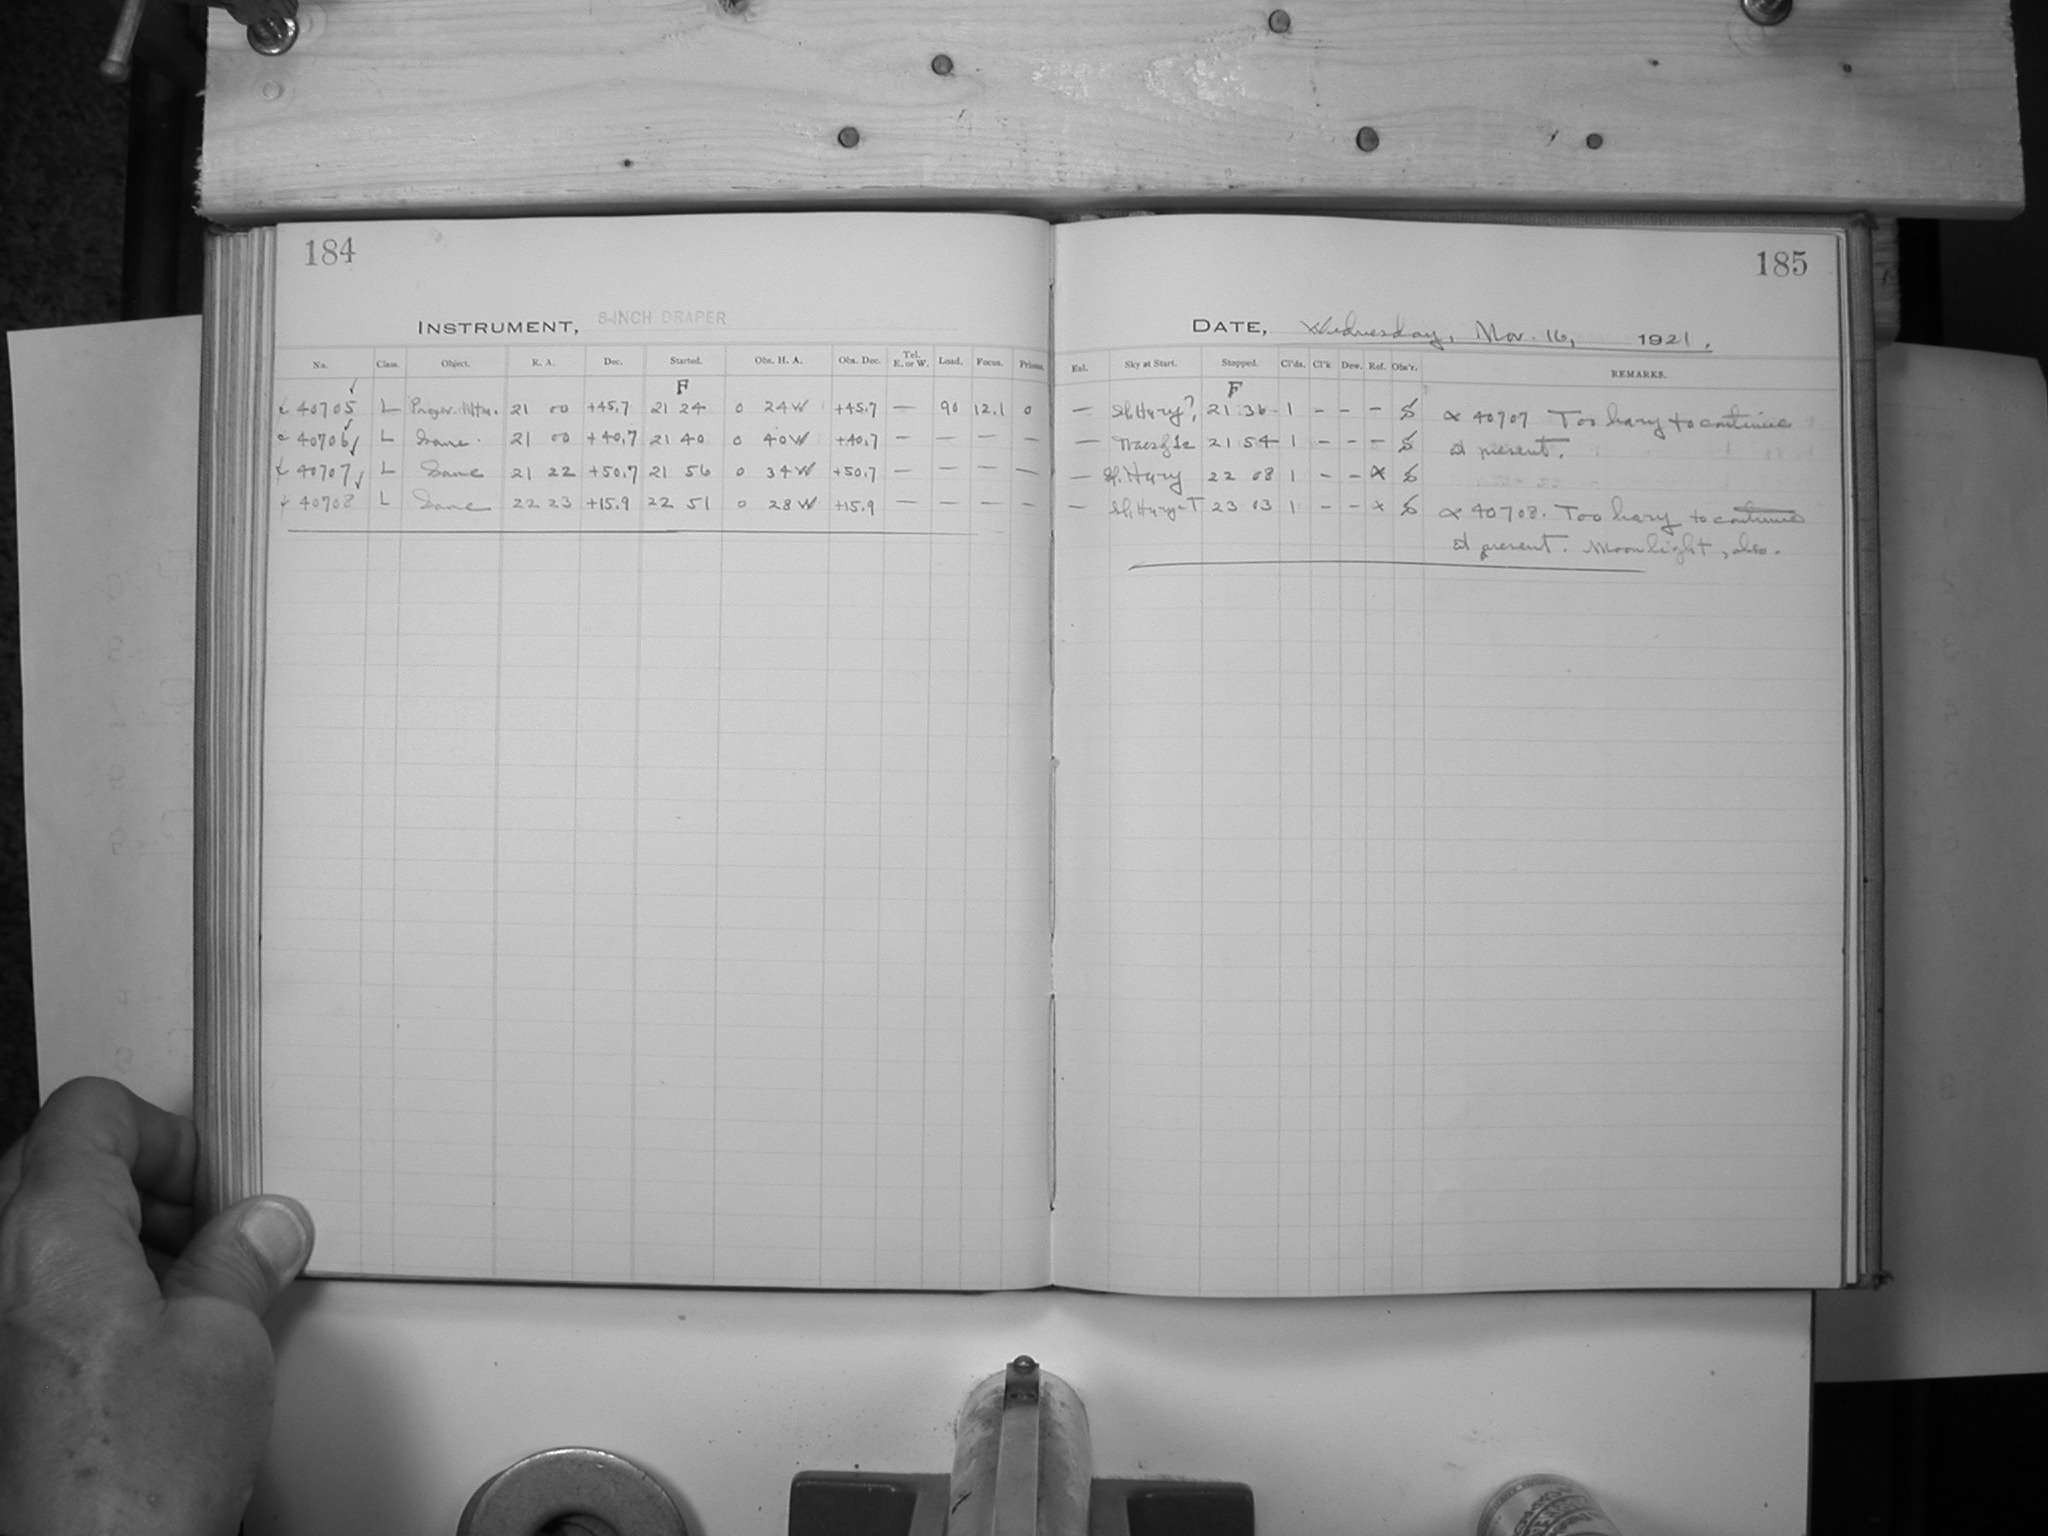 184
INSTRUMENT, 8-INCH DRAPER
No. Class. Object. R. A. Dec. Started. Obs. H. A. Obs. Dec. Tel. E. or W. Load. Focus. Prisms.
F
40705 L 21 00 +45.7 21 24 0 24W +45.7 — 90 12.1 0
40706 L Same. 21 00 +40.7 21 40 0 40W +40.7 — — — —
40707 L Same 21 22 +50.7 21 56 0 34W +50.7 — — — —
40708 L Same 22 23 +15.9 22 51 0 28W +15.9 — — — —
185
DATE, Wednesday, Nov. 16, 1921.
Ext. Sky at Start. Stopped. Cl'ds. Cl'k Dew. Ref. Obs'r. REMARKS.
F
— Sl. Hazy? 21 36 1 – – – S ∝ 40707 Too hazy to continue
— 21 54 1 – – – S at present.
— Sl. Hazy 22 08 1 – – x S
— Sl. Hazy-T 23 03 1 – – x S ∝ 40708. Too hazy to continue
at present. Moonlight, also.